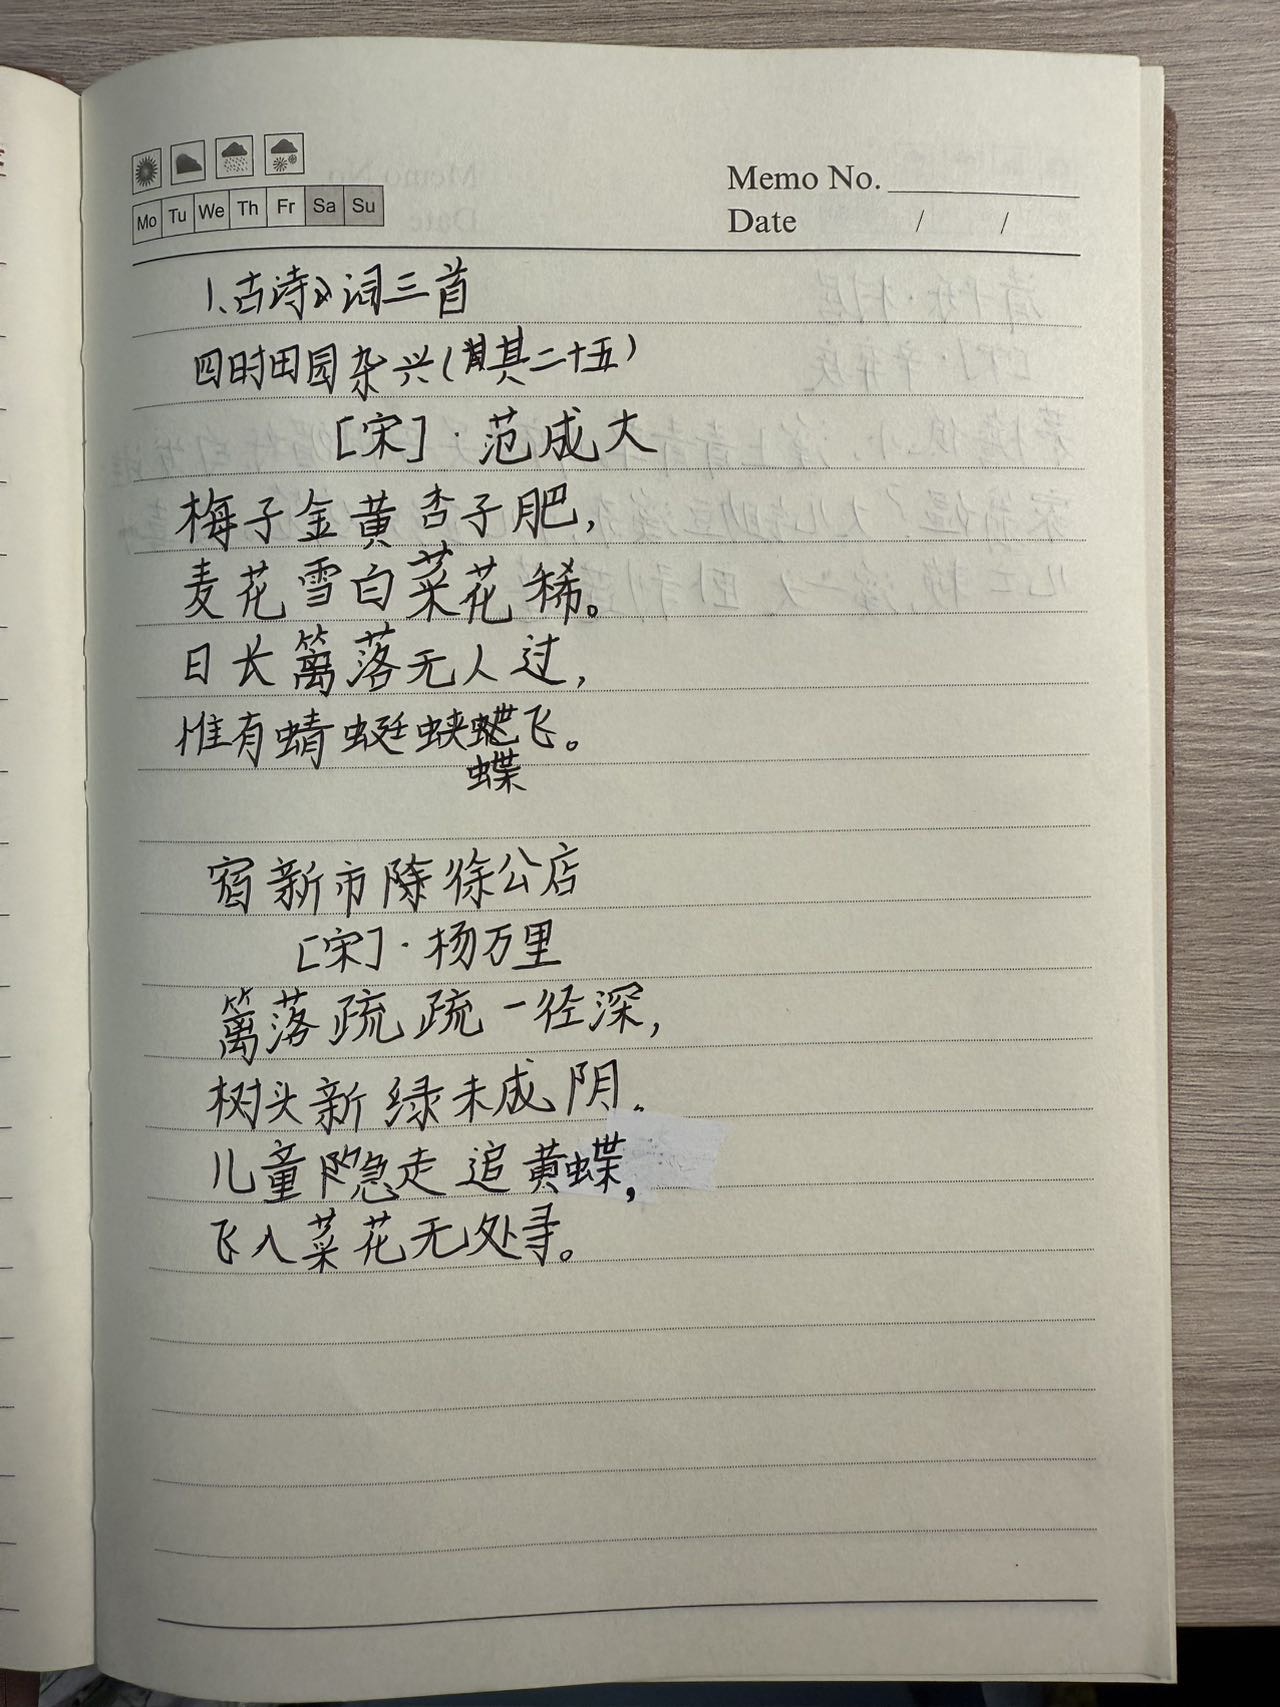 Mo Tu We Th Fr Sa Su
Memo No.
Date / /
1、古诗词三首
四时田园杂兴(其二十五)
[宋]·范成大
梅子金黄杏子肥,
麦花雪白菜花稀。
日长篱落无人过,
惟有蜻蜓蛱飞。
蝶
宿新市徐公店
[宋]·杨万里
篱落疏疏一径深,
树头新绿未成阴。
儿童急走追黄蝶,
飞入菜花无处寻。